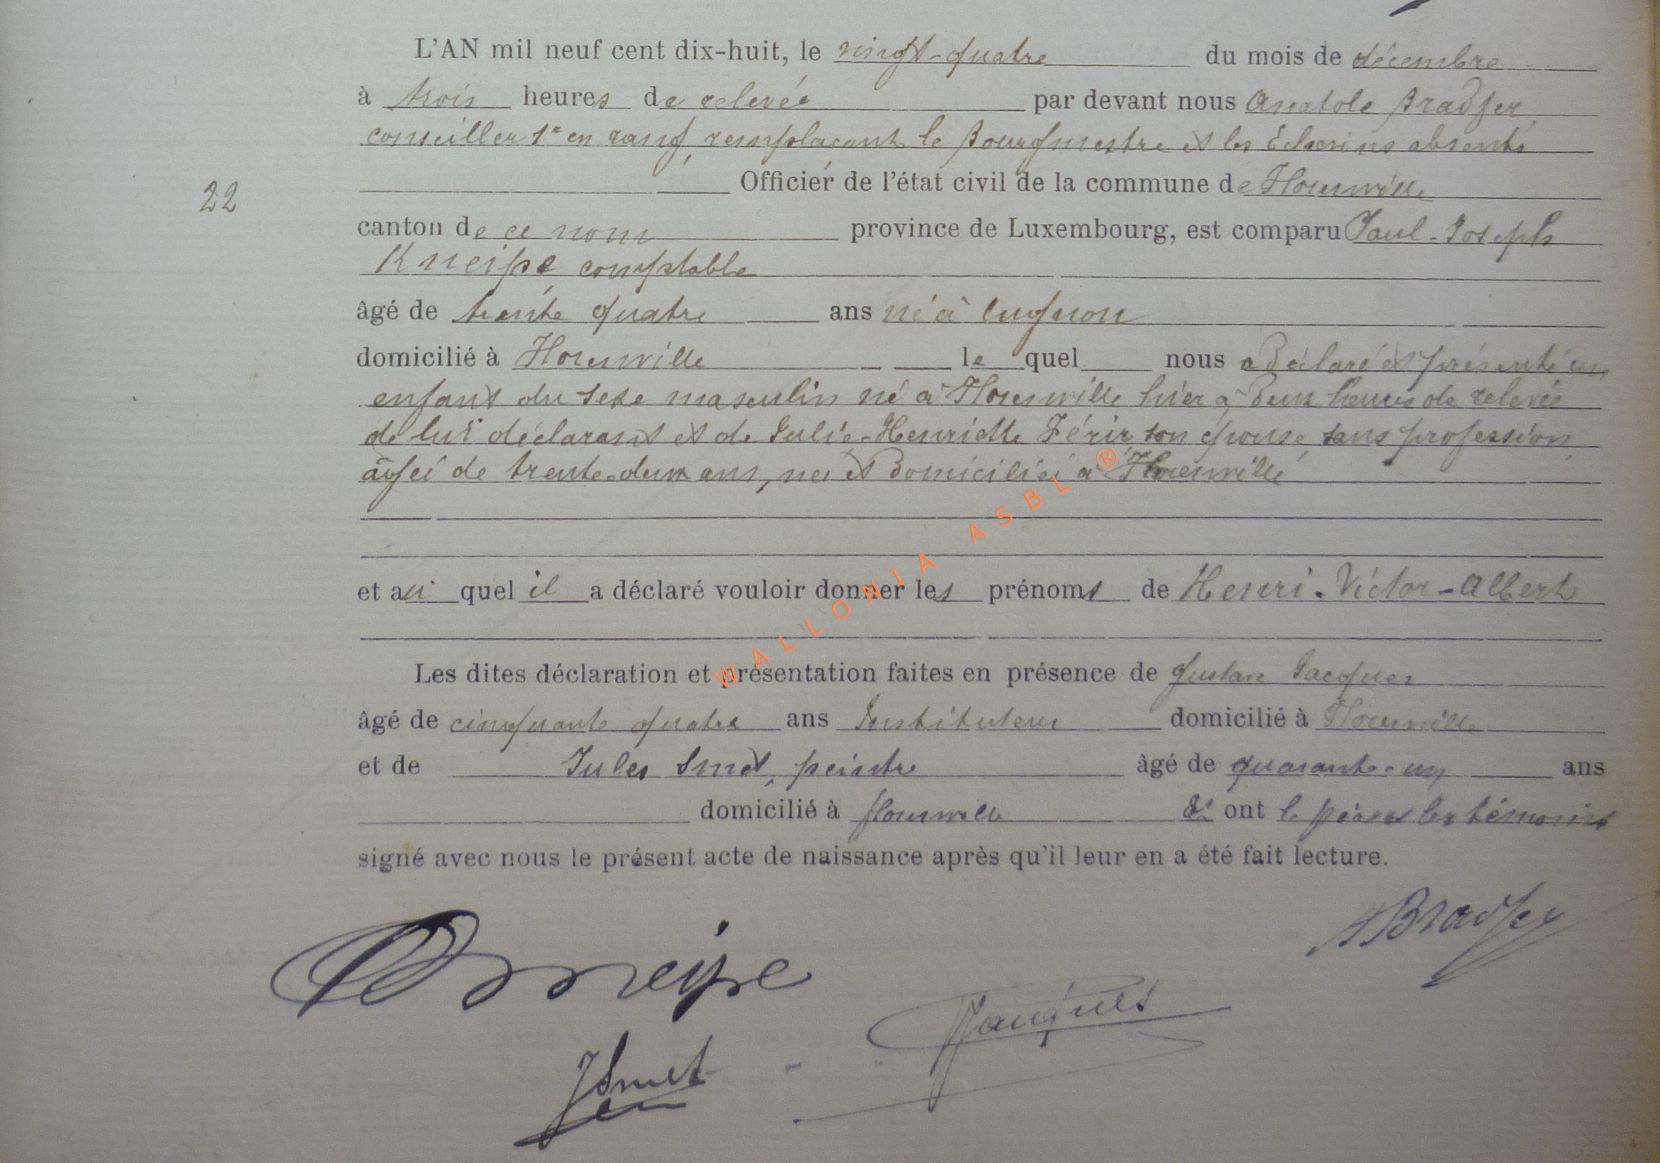 L'AN mil neuf cent dix-huit, le vingt-quatre du mois de décembre
à trois heures de relevée par devant nous Anatole Bradfer
conseiller 1er en rang, remplaçant le Bourgmestre et les Echevins absents
Officier de l'état civil de la commune de Florenville
22
canton de ce nom province de Luxembourg, est comparu Paul-Joseph
Kneipe comptable
âgé de trente quatre ans né à Cugnon
domicilié à Florenville lequel nous a déclaré et présenté un
enfant du sexe masculin né à Florenville hier à deux heures de relevée
de lui déclarant et de Julie-Henriette Férir son épouse, sans profession
âgée de trente-deux ans, née et domiciliée à Florenville
et auquel il a déclaré vouloir donner les prénoms de Henri-Victor-Albert
Les dites déclaration et présentation faites en présence de Gustave Jacques
âgé de cinquante quatre ans Instituteur domicilié à Florenville
et de Jules Smet, peintre âgé de quarante-un ans
domicilié à Florenville Et ont le père et les témoins
signé avec nous le présent acte de naissance après qu'il leur en a été fait lecture.
ABradfer
Kneipe
Jacques
JSmet
WALLONIA ASBL ®